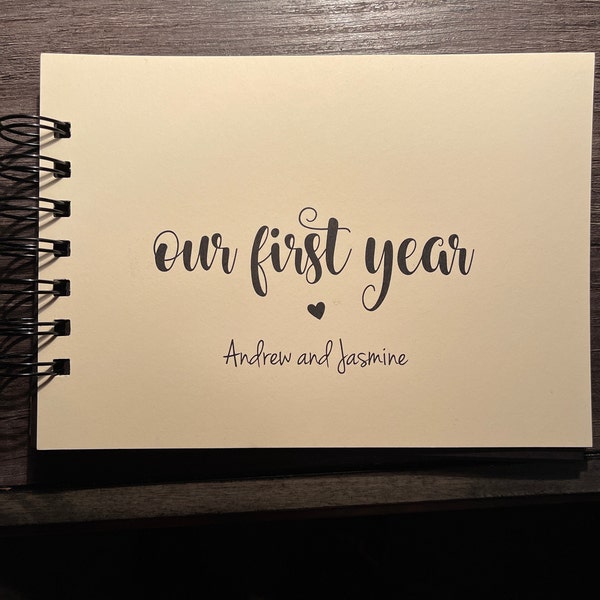 our first year
Andrew and Jasmine